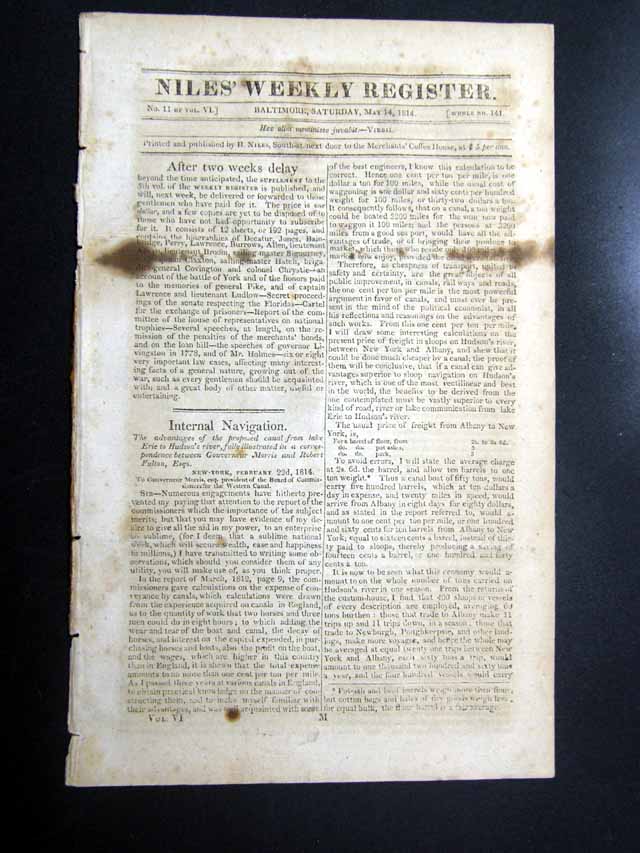 NILES' WEEKLY REGISTER.
No. 11 OF VOL. VI.]
BALTIMORE, SATURDAY, MAY 14, 1814.
[WHOLE NO. 141.
Hæc olim meminisse juvabit.—VIRGIL.
Printed and published by H. NILES, South-st. next door to the Merchants' Coffee House, at $ 5 per ann.
After two weeks delay
beyond the time anticipated, the SUPPLEMENT to the
5th vol. of the WEEKLY REGISTER is published, and
will, next week, be delivered or forwarded to those
gentlemen who have paid for it. The price is one
dollar, and a few copies are yet to be disposed of to
those who have not had opportunity to subscribe
for it. It consists of 12 sheets, or 192 pages, and
contains the biographies of Decatur, Jones, Bain-
bridge, Perry, Lawrence, Burrows, Allen, lieutenant
sailing-master Sigourney,
Claxton, sailing-master Hatch, briga-
general Covington and colonel Chrystie—an
account of the battle of York and of the honors paid
to the memories of general Pike, and of captain
Lawrence and lieutenant Ludlow—Secret proceed-
ings of the senate respecting the Floridas—Cartel
for the exchange of prisoners—Report of the com-
mittee of the house of representatives on national
trophies—Several speeches, at length, on the re-
mission of the penalties of the merchants' bonds,
and on the loan bill—the speeches of governor Li-
vingston in 1778, and of Mr. Holmes—six or eight
very important law cases, affecting many interest-
ing facts of a general nature, growing out of the
war, such as every gentleman should be acquainted
with; and a great body of other matter, useful or
entertaining.
Internal Navigation.
The advantages of the proposed canal from lake
Erie to Hudson's river, fully illustrated in a corres-
pondence between Gouverneur Morris and Robert
Fulton, Esqs.
NEW-YORK, FEBRUARY 22d, 1814.
To Gouverneur Morris, esq. president of the Board of Commis-
sioners for the Western Canal.
SIR—Numerous engagements have hitherto pre-
vented my paying that attention to the report of the
commissioners which the importance of the subject
merits; but that you may have evidence of my de-
sire to give all the aid in my power, to an enterprise
so sublime, (for I deem that a sublime national
work, which will secure wealth, ease and happiness
to millions,) I have transmitted to writing some ob-
servations, which should you consider them of any
utility, you will make use of, as you think proper.
In the report of March, 1812, page 9, the com-
missioners gave calculations on the expense of con-
veyance by canals, which calculations were drawn
from the experience acquired on canals in England,
as to the quantity of work that two horses and three
men could do in eight hours; to which adding the
wear and tear of the boat and canal, the decay of
horses, and interest on the capital expended, in pur-
chasing horses and boats, also the profit on the boat,
and the wages, which are higher in this country
than in England, it is shewn that the total expense
amounts to no more than one cent per ton per mile.
As I passed three years at various canals in England,
to obtain practical knowledge on the manner of con-
structing them, and to make myself familiar with
their advantages, and was well acquainted with some
of the best engineers, I know this calculation to be
correct. Hence one cent per ton per mile, is one
dollar a ton for 100 miles, while the usual cost of
waggoning is one dollar and sixty cents per hundred
weight for 100 miles, or thirty-two dollars a ton.
It consequently follows, that on a canal, a ton weight
could be boated 3200 miles for the sum now paid
to waggon it 100 miles; and the persons at 3200
miles from a good sea port, would have all the ad-
vantages of trade, or of bringing their produce to
market, which those who reside only 100 miles from
market now enjoy, provided the
Therefore, as cheapness of transport, united to
safety and certainty, are the great objects of all
public improvement, in canals, rail ways and roads,
the one cent per ton per mile is the most powerful
argument in favor of canals, and must ever be pre-
sent in the mind of the political economist, in all
his reflections and reasonings on the advantages of
such works. From this one cent per ton per mile,
I will draw some interesting calculations on the
present price of freight in sloops on Hudson's river,
between New York and Albany, and shew that it
could be done much cheaper by a canal; the proof of
them will be conclusive, that if a canal can give ad-
vantages superior to sloop navigation on Hudson's
river, which is one of the most rectilinear and best
in the world, the benefits to be derived from the
one contemplated must be vastly superior to every
kind of road, river or lake communication from lake
Erie to Hudson's river.
The usual price of freight from Albany to New
York, is,
For a barrel of flour, from 2s. to 2s. 6d.
do. do. pot ashes,
do. do. pork,
To avoid errors, I will state the average charge
at 2s. 6d. the barrel, and allow ten barrels to one
ton weight.* Thus a canal boat of fifty tons, would
carry five hundred barrels, which at ten dollars a
day in expense, and twenty miles in speed, would
arrive from Albany in eight days for eighty dollars,
and as stated in the report referred to, would a-
mount to one cent per ton per mile, or one hundred
and sixty cents for ten barrels from Albany to New
York; equal to sixteen cents a barrel, instead of thir-
ty paid to sloops, thereby producing a saving of
fourteen cents a barrel, or one hundred and forty
cents a ton.
It is now to be seen what this economy would a-
mount to on the whole number of tons carried on
Hudson's river in one season. From the returns of
the custom-house, I find that 400 sloops or vessels
of every description are employed, averaging 60
tons burthen: those that trade to Albany make 11
trips up and 11 trips down, in a season; those that
trade to Newburgh, Poughkeepsie, and other land-
ings, make more voyages, and hence the whole may
be averaged at equal twenty one trips between New
York and Albany, each sixty tons a trip, would
amount to one thousand two hundred and sixty tons
a year, and the four hundred vessels would carry
* Pot-ash and beef barrels weigh more than flour,
but cotton bags and bales of fine goods weigh less,
for equal bulk, the flour barrel is a fair average.
VOL. VI
M